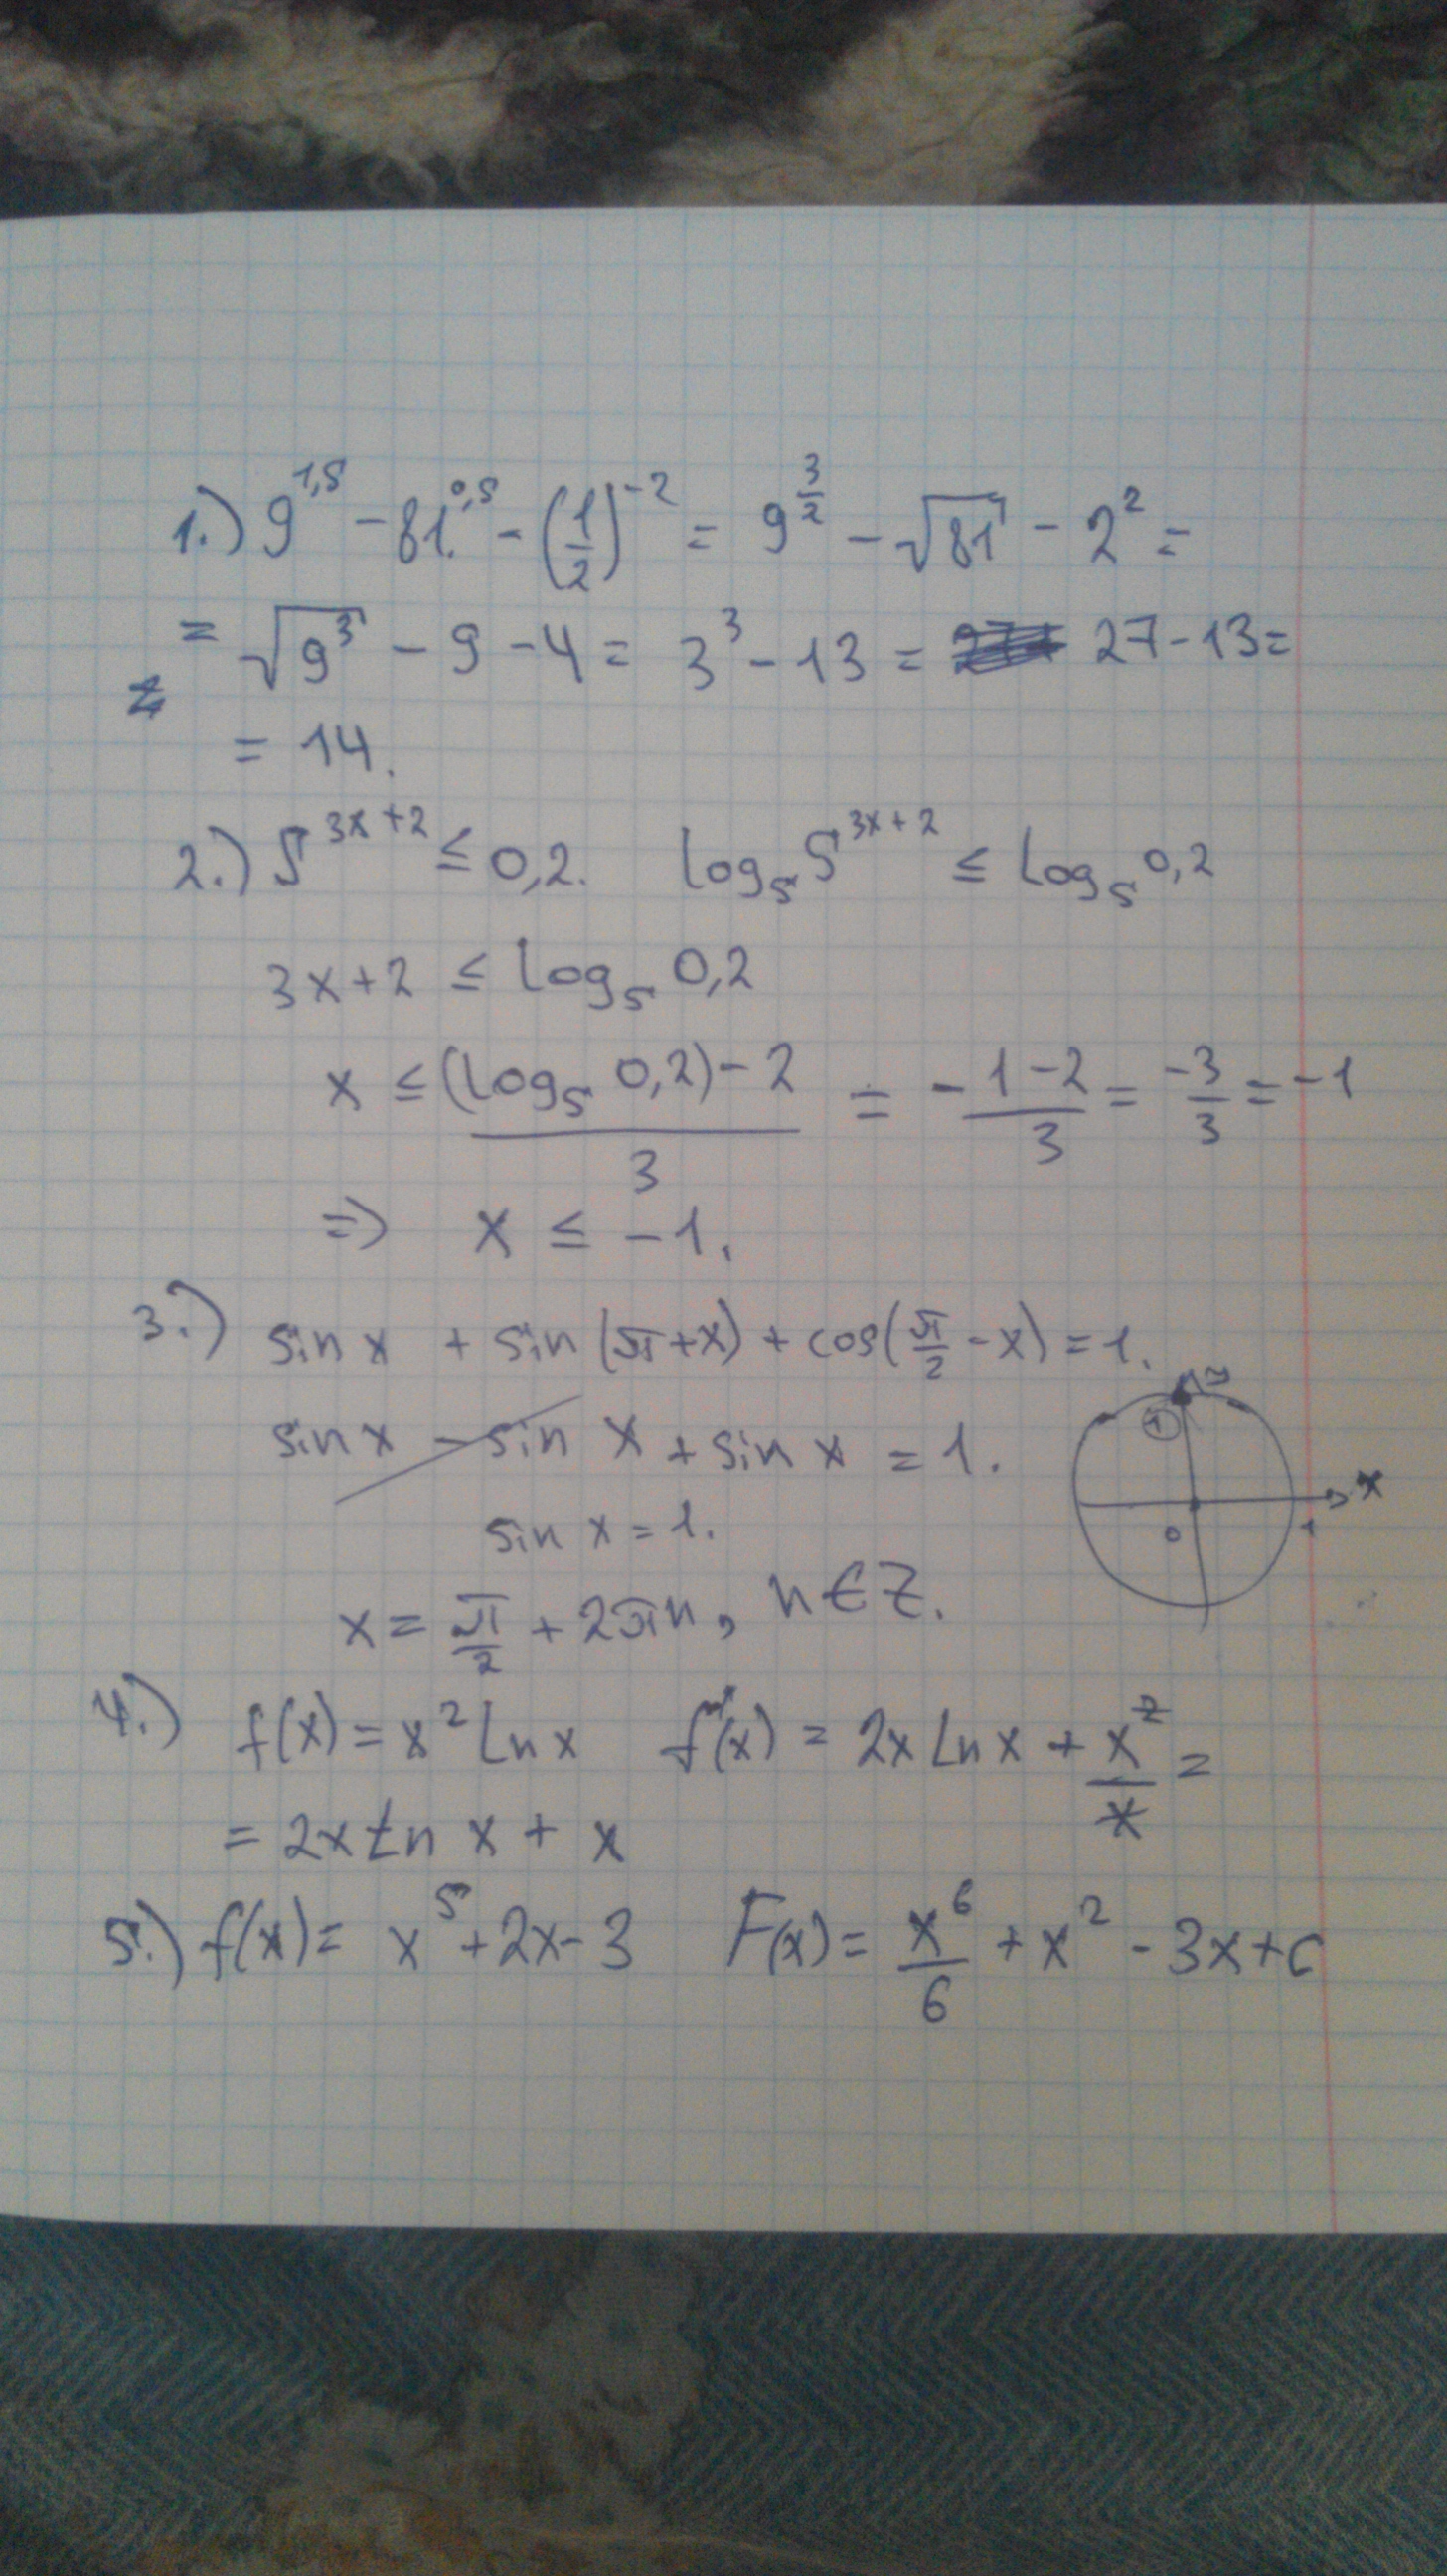 1.) 9^{1,5} - 81^{0,5} - (1/2)^{-2} = 9^{3/2} - √81 - 2^2 =
= √9^3 - 9 - 4 = 3^3 - 13 = 27 - 13 =
= 14.
2.) 5^{3x+2} ≤ 0,2. log_5 5^{3x+2} ≤ log_5 0,2
3x+2 ≤ log_5 0,2
x ≤ ((log_5 0,2) - 2)/3 = (-1-2)/3 = -3/3 = -1
=> x ≤ -1.
3.) sin x + sin(π+x) + cos(π/2 - x) = 1.
sin x - sin x + sin x = 1.
sin x = 1.
x = π/2 + 2πn, n ∈ Z.
x
0
1
4.) f(x) = x^2 ln x f'(x) = 2x ln x + x^2/x =
= 2x ln x + x
5.) f(x) = x^5 + 2x - 3 F(x) = x^6/6 + x^2 - 3x + c